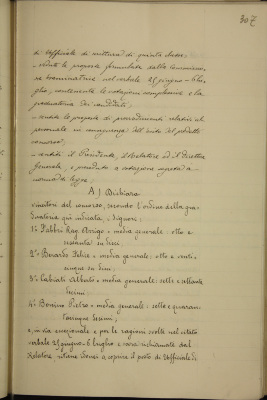 307
di Ufficiale di scrittura di quinta classe;
- vedute le proposte formulate dalla Commissio-
ne esaminatrice nel verbale 25 giugno - 6 lu-
glio, contenente la votazione complessiva e la
graduatoria dei candidati;
- vedute le proposte di provvedimenti relativi al
personale in conseguenza dell'esito del predetto
concorso;
- sentiti il Presidente, il Relatore ed il Direttore
Generale, e proceduto a votazione segreta a
norma di legge,
A) Dichiara
vincitori del concorso, secondo l'ordine della gra-
duatoria qui indicata, i Signori:
1° Fabbri Rag. Arrigo - media generale: otto e
sessanta decimi;
2° Berardo Felice - media generale: otto e venti-
cinque decimi;
3° Cubiati Alberto - media generale: sette e ottanta
decimi;
4° Bonino Pietro - media generale: sette e quaran-
tacinque decimi;
e, in via eccezionale e per le ragioni svolte nel citato
verbale 25 giugno - 6 luglio e ora richiamate dal
Relatore, ritiene idonei a coprire il posto di Ufficiale di